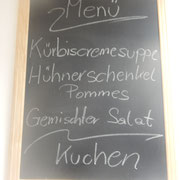 2 Menü
Kürbiscremesuppe
Hühnerschenkel
Pommes
Gemischter Salat
Kuchen